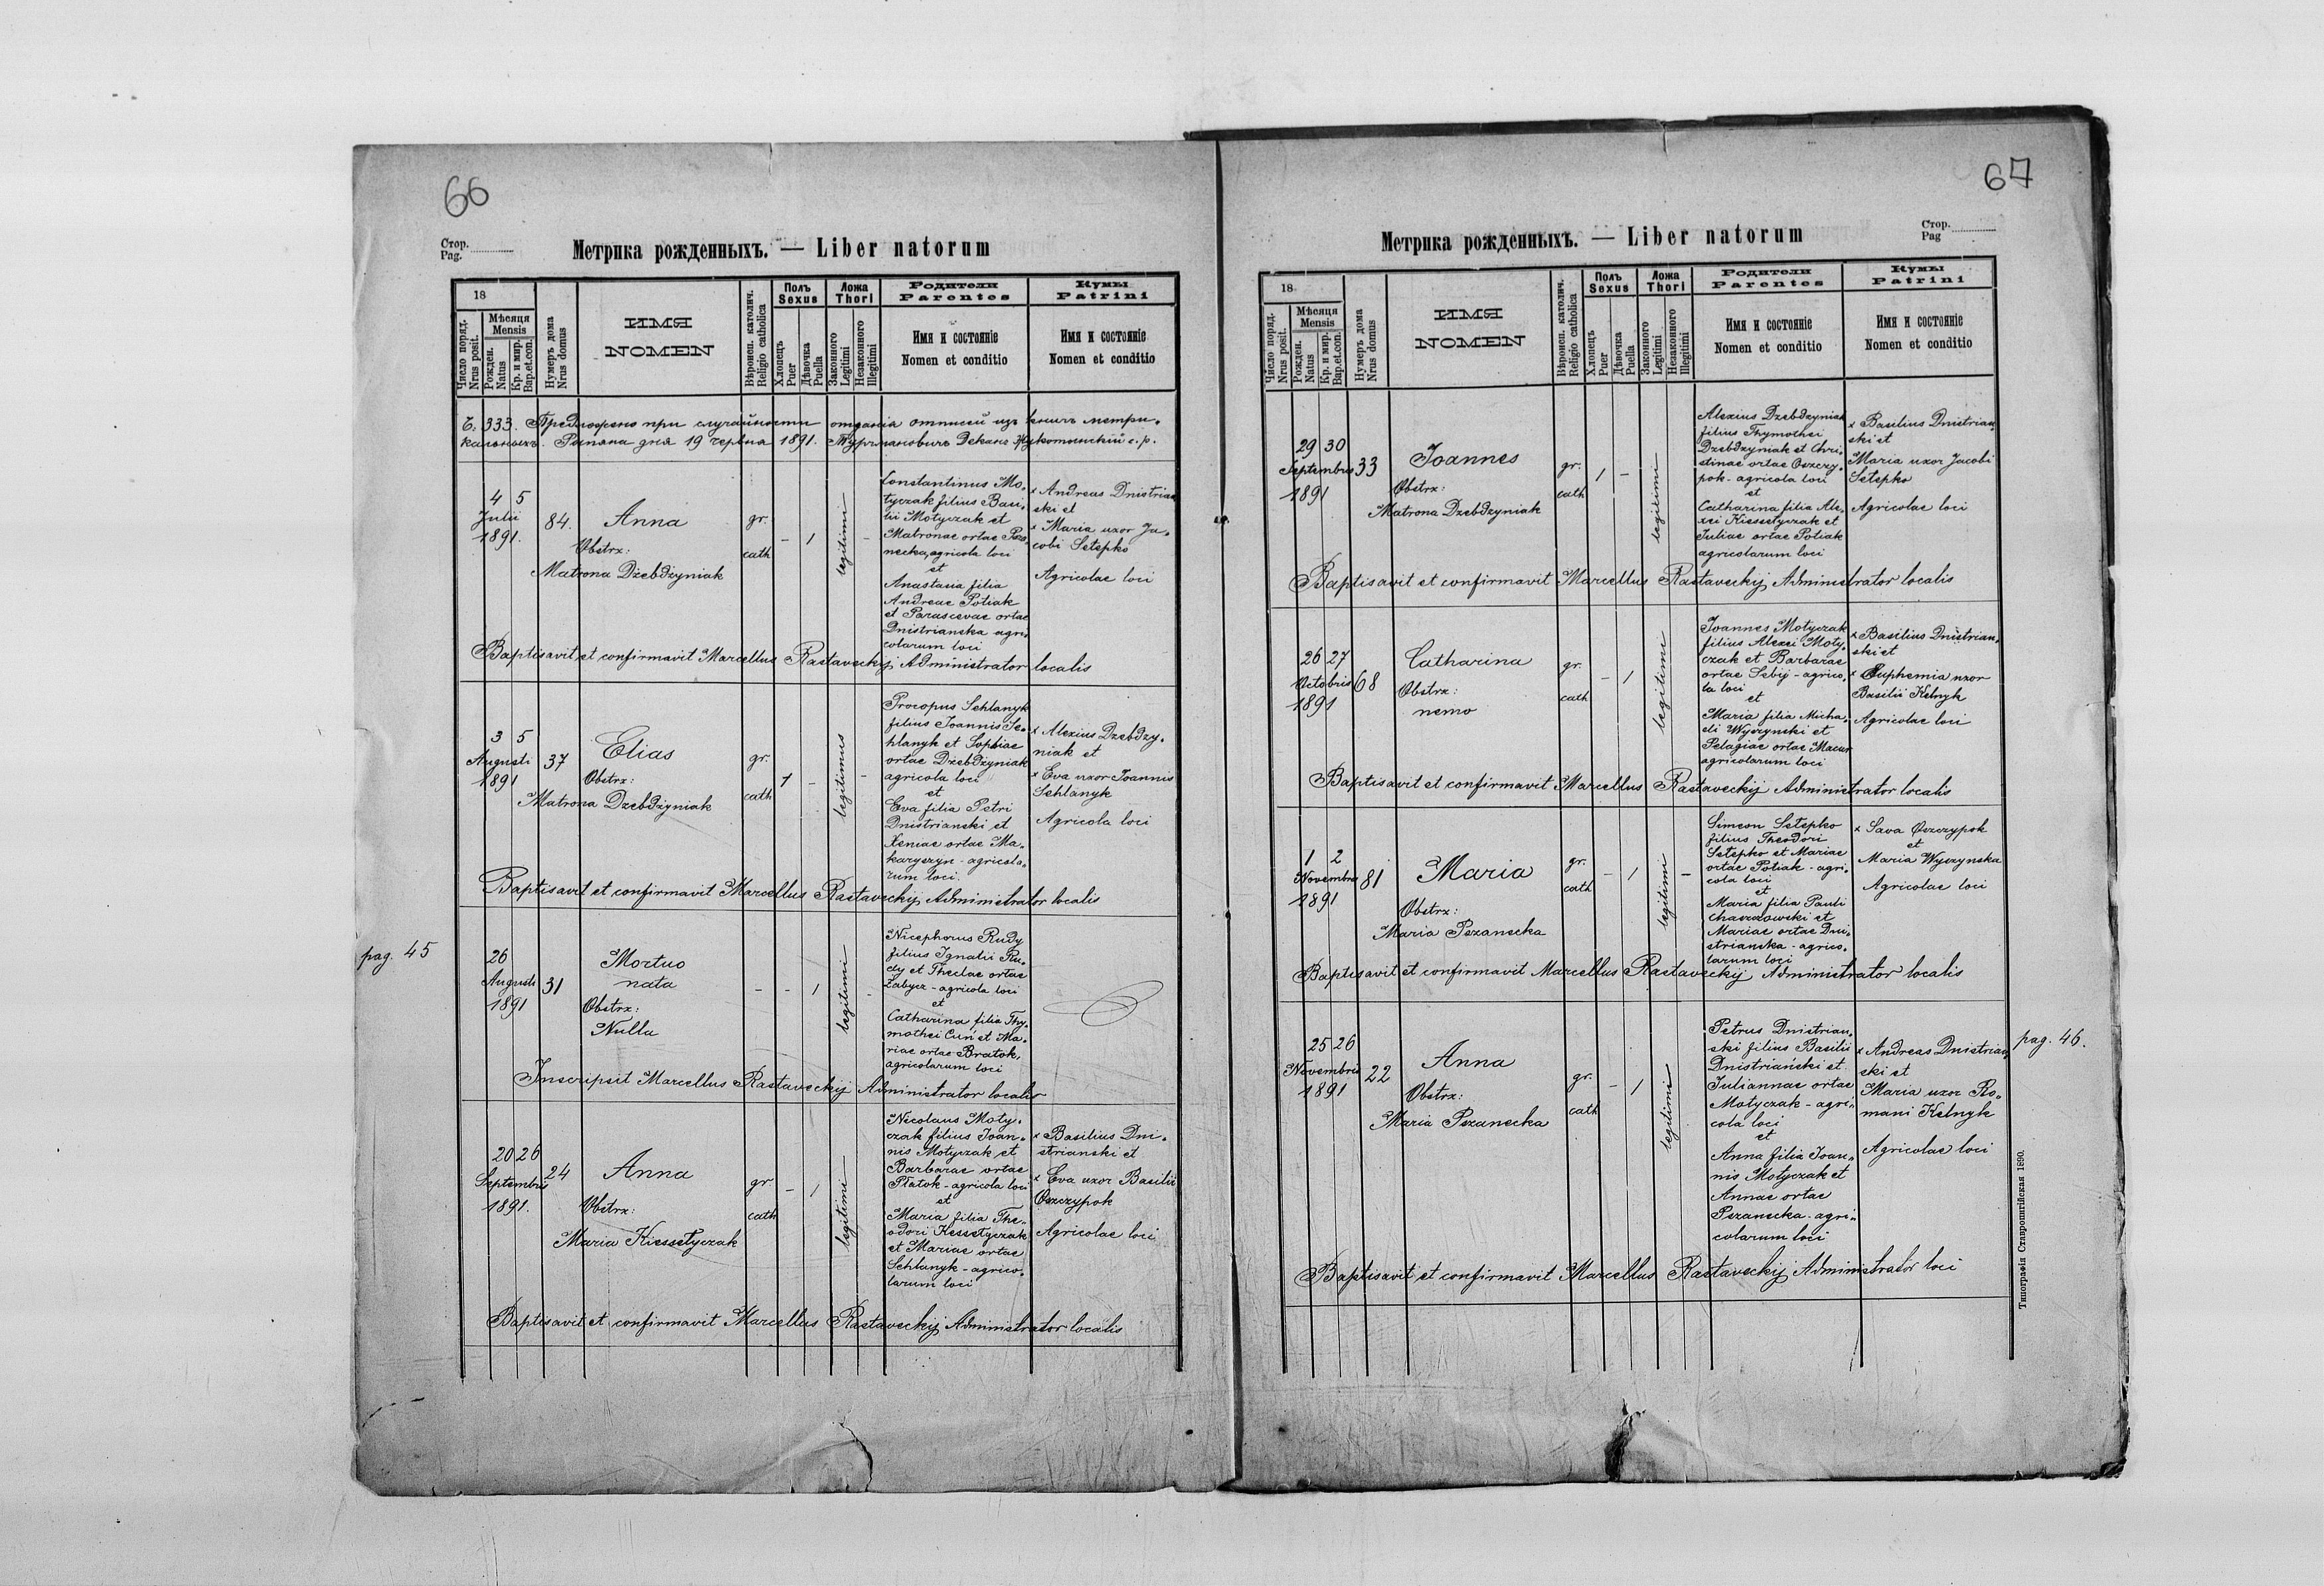 66
Стор.
Pag.
Метрика рожденныхъ. — Liber natorum
18
Число поряд.
Nrus posit.
Мѣсяця
Mensis
Рожден.
Natus
Кр. и мир.
Bap.et.con.
Нумеръ дома
Nrus domus
ИМЯ
NOMEN
Вѣроисп. католич.
Religio catholica
Полъ
Sexus
Хлопецъ
Puer
Дѣвочка
Puella
Ложа
Thori
Законного
Legitimi
Незаконного
Illegitimi
Родители
Parentes
Имя и состояніе
Nomen et conditio
Кумы
Patrini
Имя и состояніе
Nomen et conditio
Ч. 333. Предложено при случайности отданія отписей изъ книгъ метри-
кальныхъ. дня 19 червня 1891. Деканъ
4 5
Julii
1891.
84.
Anna
Obstrx:
Matrona Dzebdzyniak
gr.
cath
- 1
legitimi
-
Constantinus Mo-
tyczak filius Basi-
lii Motyczak et
Matronae ortae Psza-
necka, agricola loci
et
Anastasia filia
Andreae Potiak
et Parascevae ortae
Dnistrianska agri-
colarum loci
x Andreas Dnistrian
ski et
x Maria uxor Ja-
cobi Setepko
Agricolae loci
Baptisavit et confirmavit Marcellus Rastaveckij Administrator localis
3 5
Augusti
1891
37
Elias
Obstrx:
Matrona Dzebdzyniak
gr.
cath
1 -
legitimus
-
Procopus Sehlanyk
filius Joannis Se-
hlanyk et Sophiae
ortae Dzebdzyniak
agricola loci
et
Eva filia Petri
Dnistrianski et
Xeniae ortae Ma-
karyszyn - agricola-
rum loci.
x Alexius Dzebdzy-
niak et
x Eva uxor Joannis
Sehlanyk
Agricola loci
Baptisavit et confirmavit Marcellus Rastaveckij Administrator localis
pag. 45
26
Augusti
1891
31
Mortuo
nata
Obstrx:
Nulla
- - 1
legitimi
-
Nicephorus Rudy
filius Ignatii Ru-
dy et Theclae ortae
Zabycz - agricola loci
et
Catharina filia Thy-
mothei Cuń et Ma-
riae ortae Bratok,
agricolarum loci
Inscripsit Marcellus Rastaveckij Administrator localis
20 26
Septembris
1891.
24
Anna
Obstrx:
Maria Kiessetyczak
gr
cath
- 1
legitimi
Nicolaus Moty-
czak filius Joan-
nis Motyczak et
Barbarae ortae
Płatok - agricola loci
et
Maria filia The-
odori Kessetyczak
et Mariae ortae
Sehlanyk - agrico-
larum loci
x Basilius Dni-
strianski et
x Eva uxor Basilii
Oszczypok
Agricolae loci
Baptisavit et confirmavit Marcellus Rastaveckij Administrator localis
67
Стор.
Pag
Метрика рожденныхъ. — Liber natorum
18
Число поряд.
Nrus posit.
Мѣсяця
Mensis
Рожден.
Natus
Кр. и мир.
Bap.et.con.
Нумеръ дома
Nrus domus
ИМЯ
NOMEN
Вѣроисп. католич.
Religio catholica
Полъ
Sexus
Хлопецъ
Puer
Дѣвочка
Puella
Ложа
Thori
Законного
Legitimi
Незаконного
Illegitimi
Родители
Parentes
Имя и состояніе
Nomen et conditio
Кумы
Patrini
Имя и состояніе
Nomen et conditio
29 30
Septembris
1891
33
Joannes
Obstrx:
Matrona Dzebdzyniak
gr.
cath
1 -
legitimi
Alexius Dzebdzyniak
filius Thymothei
Dzebdzyniak et Chri-
stinae ortae Oszczy-
pok - agricola loci
et
Catharina filia Ale-
xei Kiessetyczak et
Juliae ortae Potiak
agricolarum loci
x Basilius Dnistrian-
ski et
Maria uxor Jacobi
Setepko
Agricolae loci
Baptisavit et confirmavit Marcellus Rastaveckij Administrator localis
26 27
Octobris
1891
68
Catharina
Obstrx:
nemo
gr.
cath
- 1
legitimi
Joannes Motyczak
filius Alexei Moty-
czak et Barbarae
ortae Sebij - agrico-
la loci
et
Maria filia Micha-
eli Wyszynski et
Pelagiae ortae Macur
agricolarum loci
x Basilius Dnistrian-
ski et
x Euphemia uxor
Basilii Kelnyk
Agricolae loci
Baptisavit et confirmavit Marcellus Rastaveckij Administrator localis
1 2
Novembris
1891
81
Maria
Obstrx:
Maria Pszanecka
gr.
cath
- 1
legitimi
-
Simeon Setepko
filius Theodori
Setepko et Mariae
ortae Potiak - agri-
cola loci
et
Maria filia Pauli
Chaszczowski et
Mariae ortae Dni-
strianska - agrico-
larum loci
x Sava Oszczypok
et
Maria Wyszynska
Agricolae loci
Baptisavit et confirmavit Marcellus Rastaveckij Administrator localis
25 26
Novembris
1891
22
Anna
Obstrx:
Maria Pszanecka
gr.
cath
- 1
legitimi
Petrus Dnistrian-
ski filius Basilii
Dnistriański et
Juliannae ortae
Motyczak - agri-
cola loci
et
Anna filia Joan-
nis Motyczak et
Annae ortae
Pszanecka - agri-
colarum loci
x Andreas Dnistrian-
ski et
Maria uxor Ro-
mani Kelnyk
Agricolae loci
pag. 46.
Baptisavit et confirmavit Marcellus Rastaveckij Administrator loci
Типографія Ставропигійская 1890.